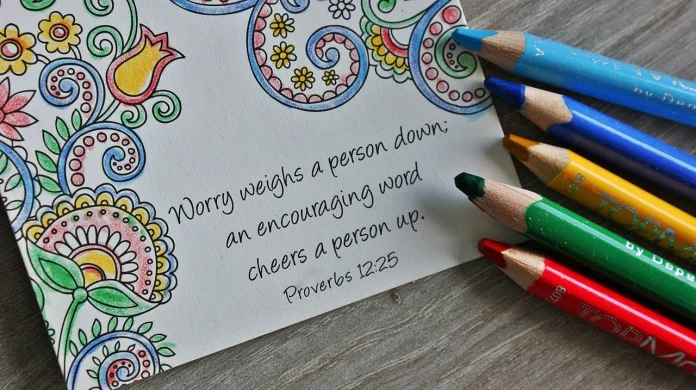 Worry weighs a person down;
an encouraging word
cheers a person up.
Proverbs 12:25
by Depe
TOPM